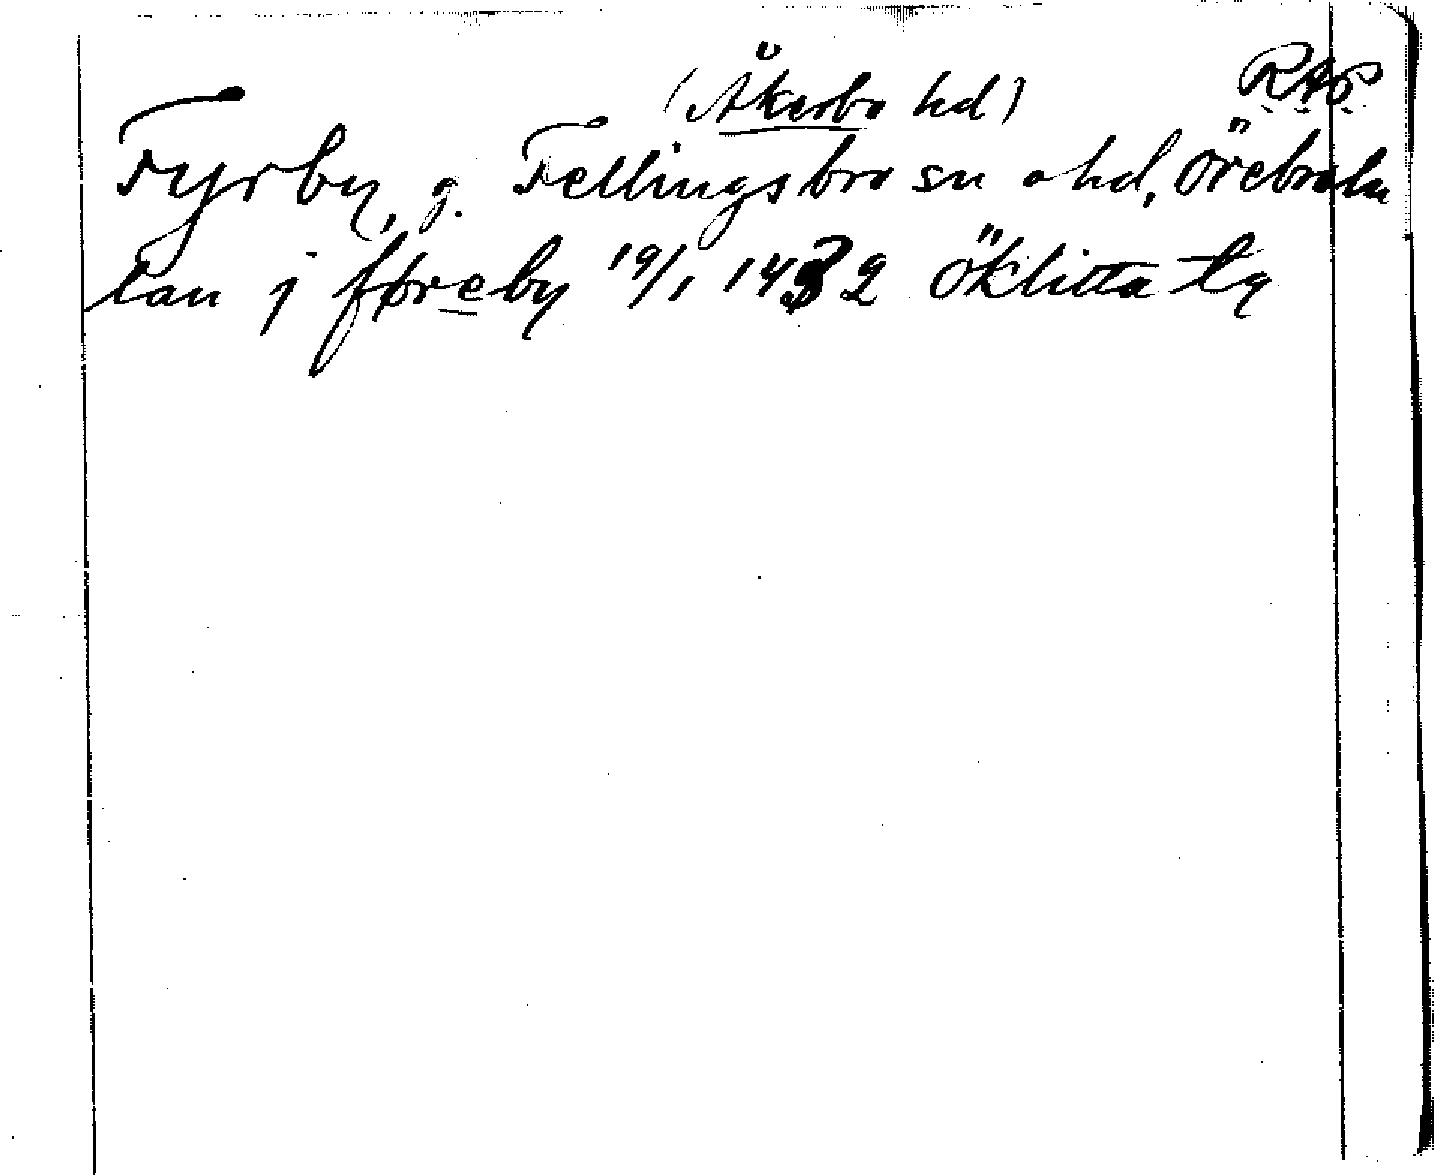 (Åkerbo hd) RAP
Fyrby, g. Fellingsbro sn o hd, Örebro län
lan j føreby 19/1 1432 Öklitta tg